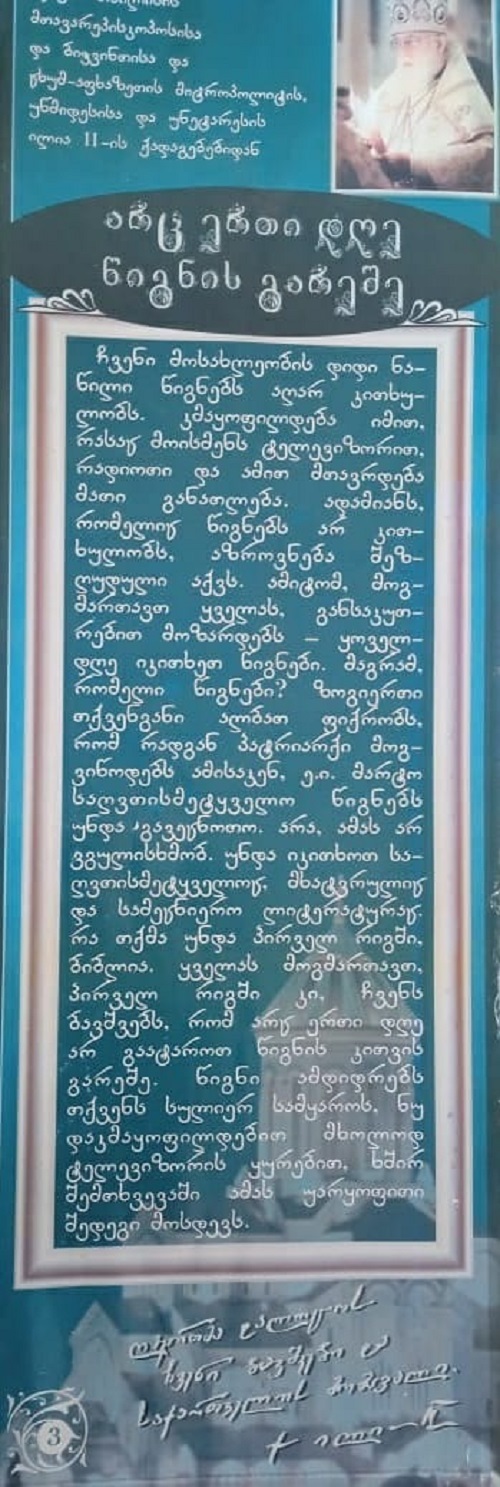 მთავარეპისკოპოსისა
და ბიჭვინთისა და
ცხუმ-აფხაზეთის მიტროპოლიტის,
უწმიდესისა და უნეტარესის
ილია II-ის ქადაგებებიდან
არც ერთი დღე
წიგნის გარეშე
ჩვენი მოსახლეობის დიდი ნა-
წილი წიგნებს აღარ კითხუ-
ლობს. კმაყოფილდება იმით,
რასაც მოისმენს ტელევიზორით,
რადიოთი და ამით მთავრდება
მათი განათლება. ადამიანს,
რომელიც წიგნებს არ კით-
ხულობს, აზროვნება შეზ-
ღუდული აქვს. ამიტომ, მოგ-
მართავთ ყველას, განსაკუთ-
რებით მოზარდებს – ყოველ-
დღე იკითხეთ წიგნები. მაგრამ,
რომელი წიგნები? ზოგიერთი
თქვენგანი ალბათ ფიქრობს,
რომ რადგან პატრიარქი მოგ-
ვიწოდებს ამისაკენ, ე.ი. მარტო
საღვთისმეტყველო წიგნებს
უნდა გავეცნოთო. არა, ამას არ
ვგულისხმობ. უნდა იკითხოთ სა-
ღვთისმეტყველოც, მხატვრულიც
და სამეცნიერო ლიტერატურაც.
რა თქმა უნდა პირველ რიგში,
ბიბლია. ყველას მოგმართავთ,
პირველ რიგში კი, ჩვენს
ბავშვებს, რომ არც ერთი დღე
არ გაატაროთ წიგნის კითვის
გარეშე. წიგნი ამდიდრებს
თქვენს სულიერ სამყაროს, ნუ
დაკმაყოფილდებით მხოლოდ
ტელევიზორის ყურებით, ხშირ
შემთხვევაში ამას უარყოფითი
შედეგი მოსდევს.
ღმერთმა გალოცოს
ჩვენი ბავშვები და
საქართველოს მომავალი.
+ ილია II
3